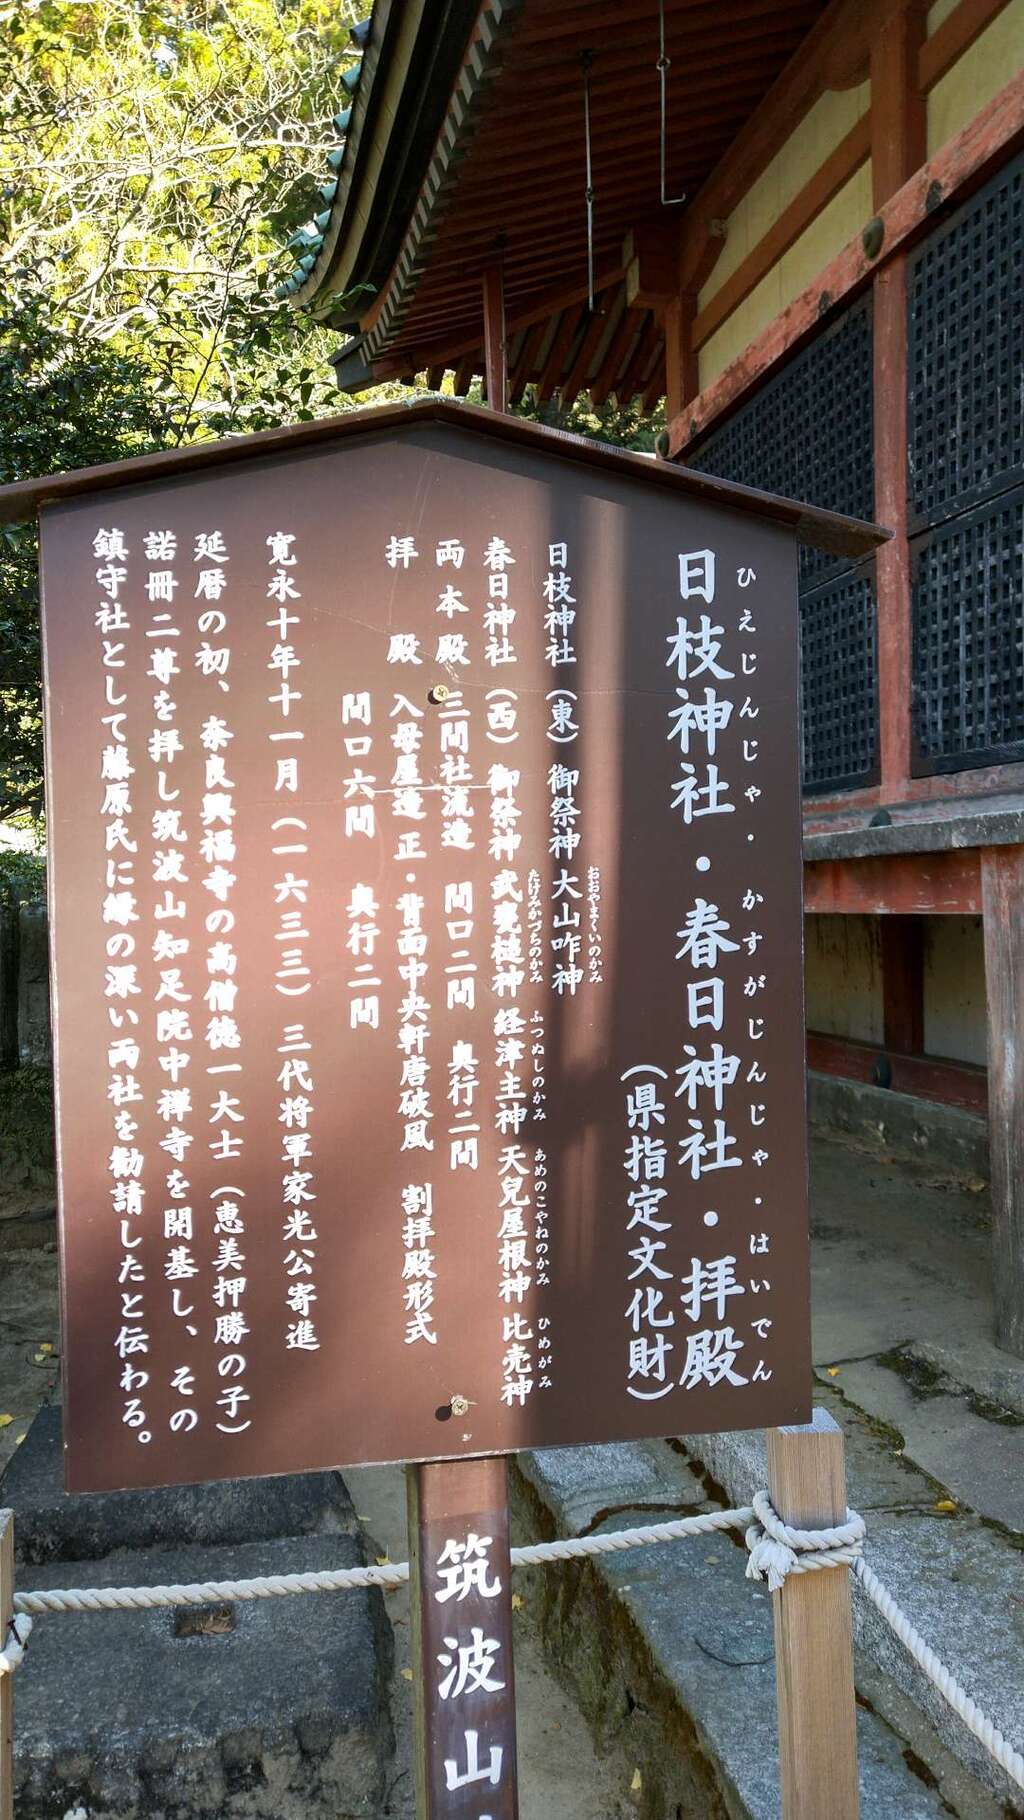 日枝神社・春日神社・拝殿
ひえじんじゃ・かすがじんじゃ・はいでん
(県指定文化財)
日枝神社(東)御祭神 大山咋神
おおやまくいのかみ
春日神社(西)御祭神 武甕槌神 経津主神 天兒屋根神 比売神
たけみかづちのかみ ふつぬしのかみ あめのこやねのかみ ひめがみ
両本殿 三間社流造 間口二間 奥行二間
拝 殿 入母屋造 正・背面中央軒唐破風 割拝殿形式
間口六間 奥行二間
寛永十年十一月(一六三三)三代将軍家光公寄進
延暦の初、奈良興福寺の高僧徳一大士(恵美押勝の子)
諾冊二尊を拝し筑波山知足院中禅寺を開基し、その
鎮守社として藤原氏に縁の深い両社を勧請したと伝わる。
筑波山